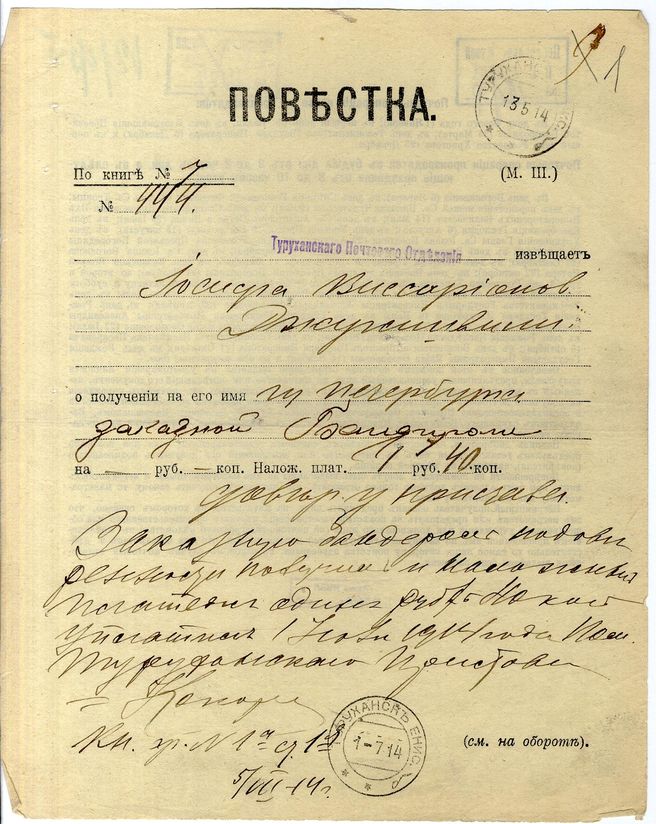 1
ТУРУХАНС ЕНИС.
13 5 14
ПОВѢСТКА.
По книгѣ № 7
(М. III.)
№ 444.
Туруханскаго Почтоваго Отдѣленія извѣщаетъ
Іосифа Виссаріонов.
Джугашвили.
о полученіи на его имя изъ Петербурга
заказной Бандероли
на — руб. — коп. Налож. плат. 1 руб. 40 коп.
довѣр. у пристава.
Заказную бандероль по довѣ
ренности получилъ и наложенный
платежъ одинъ рубль 40 коп
уплатилъ 1 1914 года Пом.
Туруханскаго Пристава
Кн. № 1й 1й
ТУРУХАНСКЪ ЕНИС.
1-7 14
(см. на оборотѣ).
5/VII-14г.